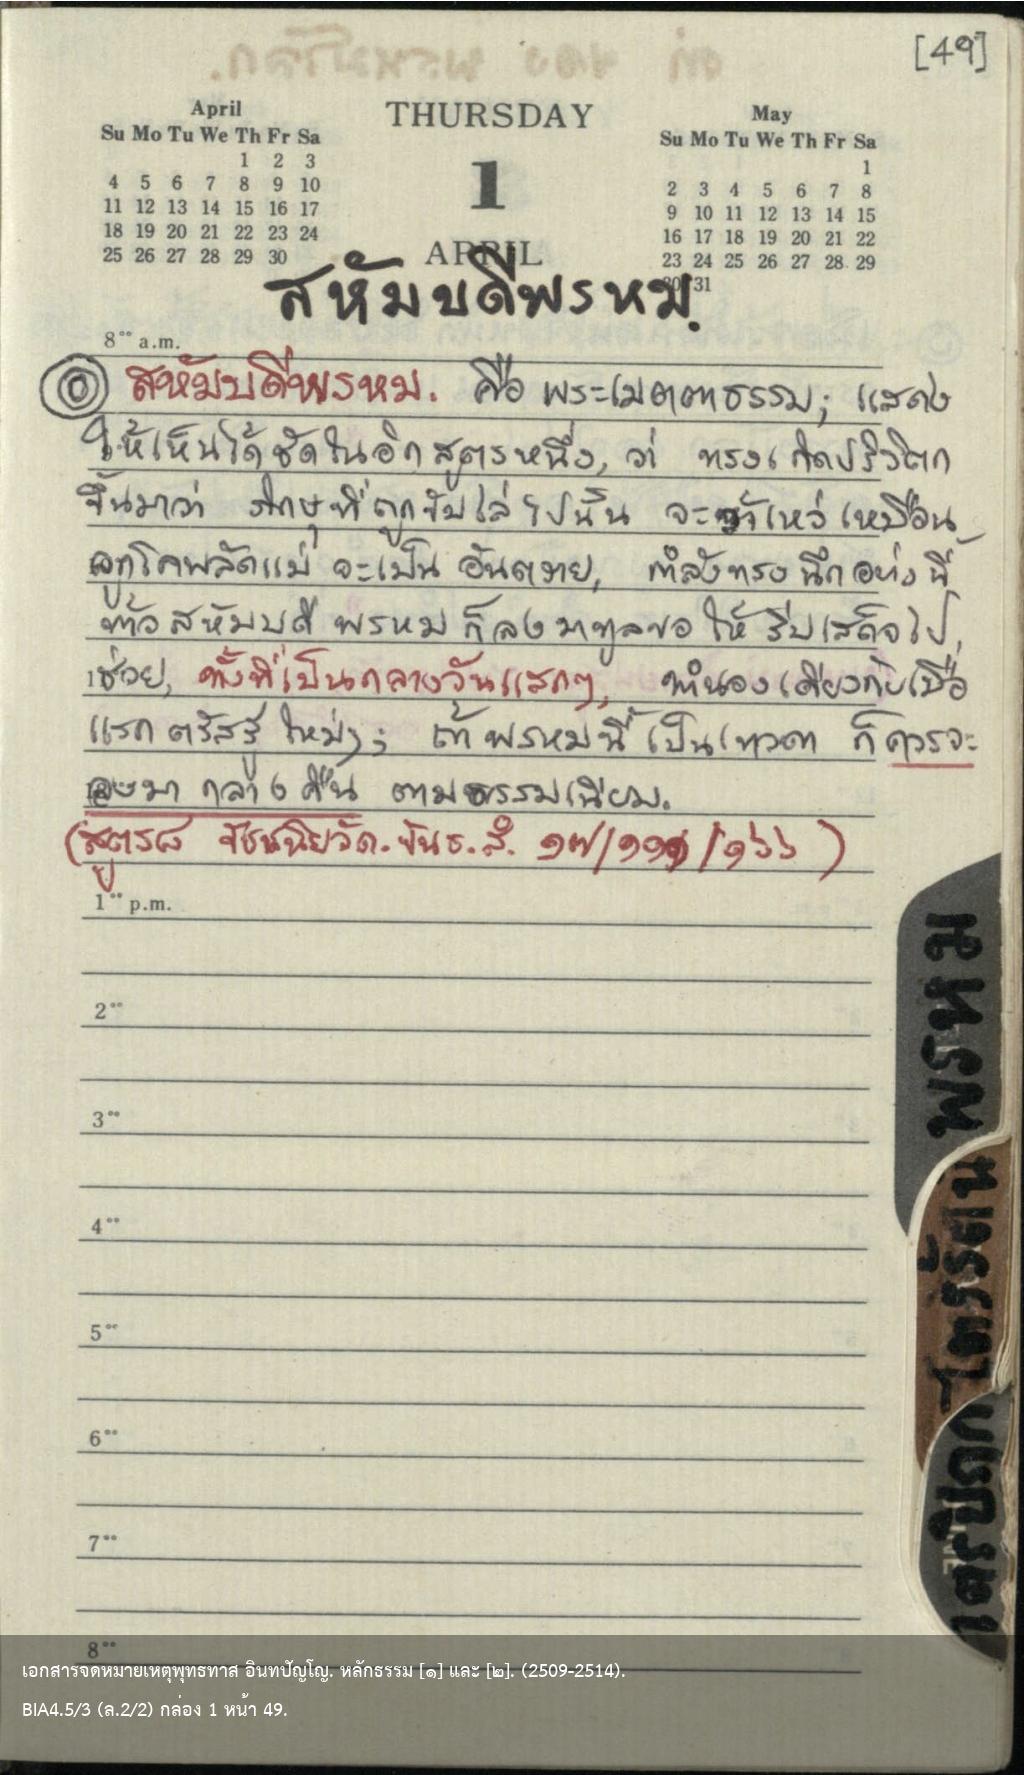 [49]
April
Su Mo Tu We Th Fr Sa
1 2 3
4 5 6 7 8 9 10
11 12 13 14 15 16 17
18 19 20 21 22 23 24
25 26 27 28 29 30
THURSDAY
1
APRIL
May
Su Mo Tu We Th Fr Sa
1
2 3 4 5 6 7 8
9 10 11 12 13 14 15
16 17 18 19 20 21 22
23 24 25 26 27 28 29
30 31
สหัมบดีพรหม.
8°° a.m.
สหัมบดีพรหม. คือ พระเมตตาธรรม; แสดง
ให้เห็นได้ชัดในอีกสูตรหนึ่ง, ว่า ทรงเกิดปริวิตก
ขึ้นมาว่า ภิกษุที่ถูกขับไล่ไปนั้น จะว้าเหว่เหมือน
ลูกโคพลัดแม่ จะเป็นอันตราย, กำลังทรงนึกอย่างนี้
ท้าวสหัมบดี พรหม ก็ลงมาทูลขอให้รีบเสด็จไป
ช่วย, ทั้งที่เป็นกลางวันแสกๆ, ทำนองเดียวกับเมื่อ
แรกตรัสรู้ใหม่ๆ; ถ้าพรหมนี้เป็นเทวดา ก็ควรจะ
มา กลางคืน ตามธรรมเนียม.
(สูตร๘ ขัชชนิยวัค. ขันธ. สํ. ๑๗/๑๑๑/๑๖๖)
1°° p.m.
2°°
3°°
4°°
5°°
6°°
7°°
8°°
พรหม
ไตรรัตน
ไตรปิฎก
เอกสารจดหมายเหตุพุทธทาส อินทปัญโญ. หลักธรรม [๑] และ [๒]. (2509-2514).
BIA4.5/3 (ล.2/2) กล่อง 1 หน้า 49.